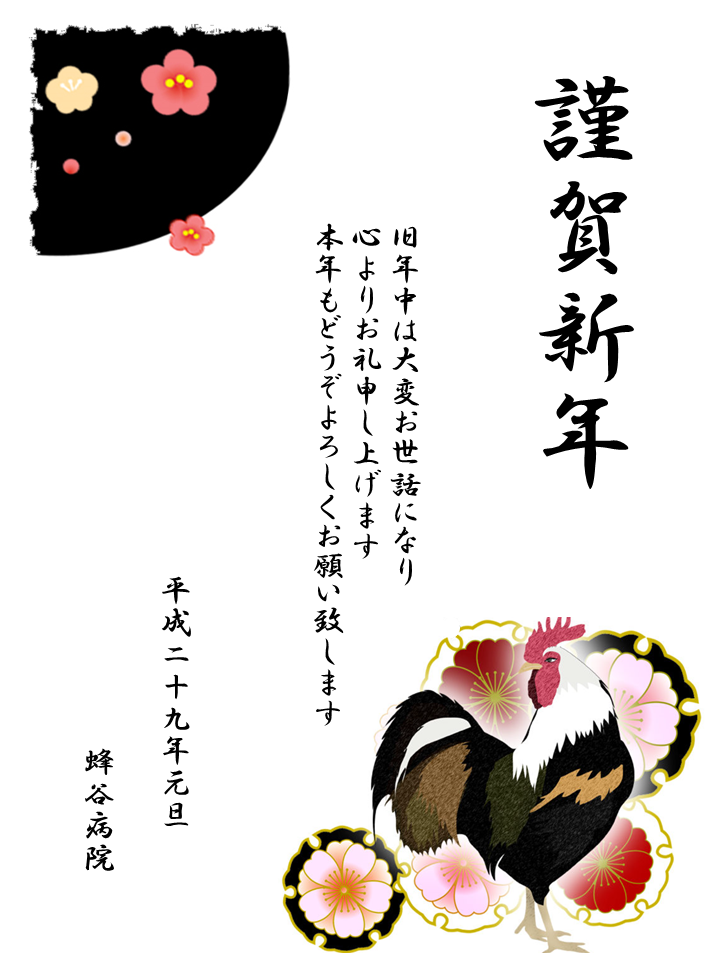 謹賀新年
旧年中は大変お世話になり
心よりお礼申し上げます
本年もどうぞよろしくお願い致します
平成二十九年元旦
蜂谷病院